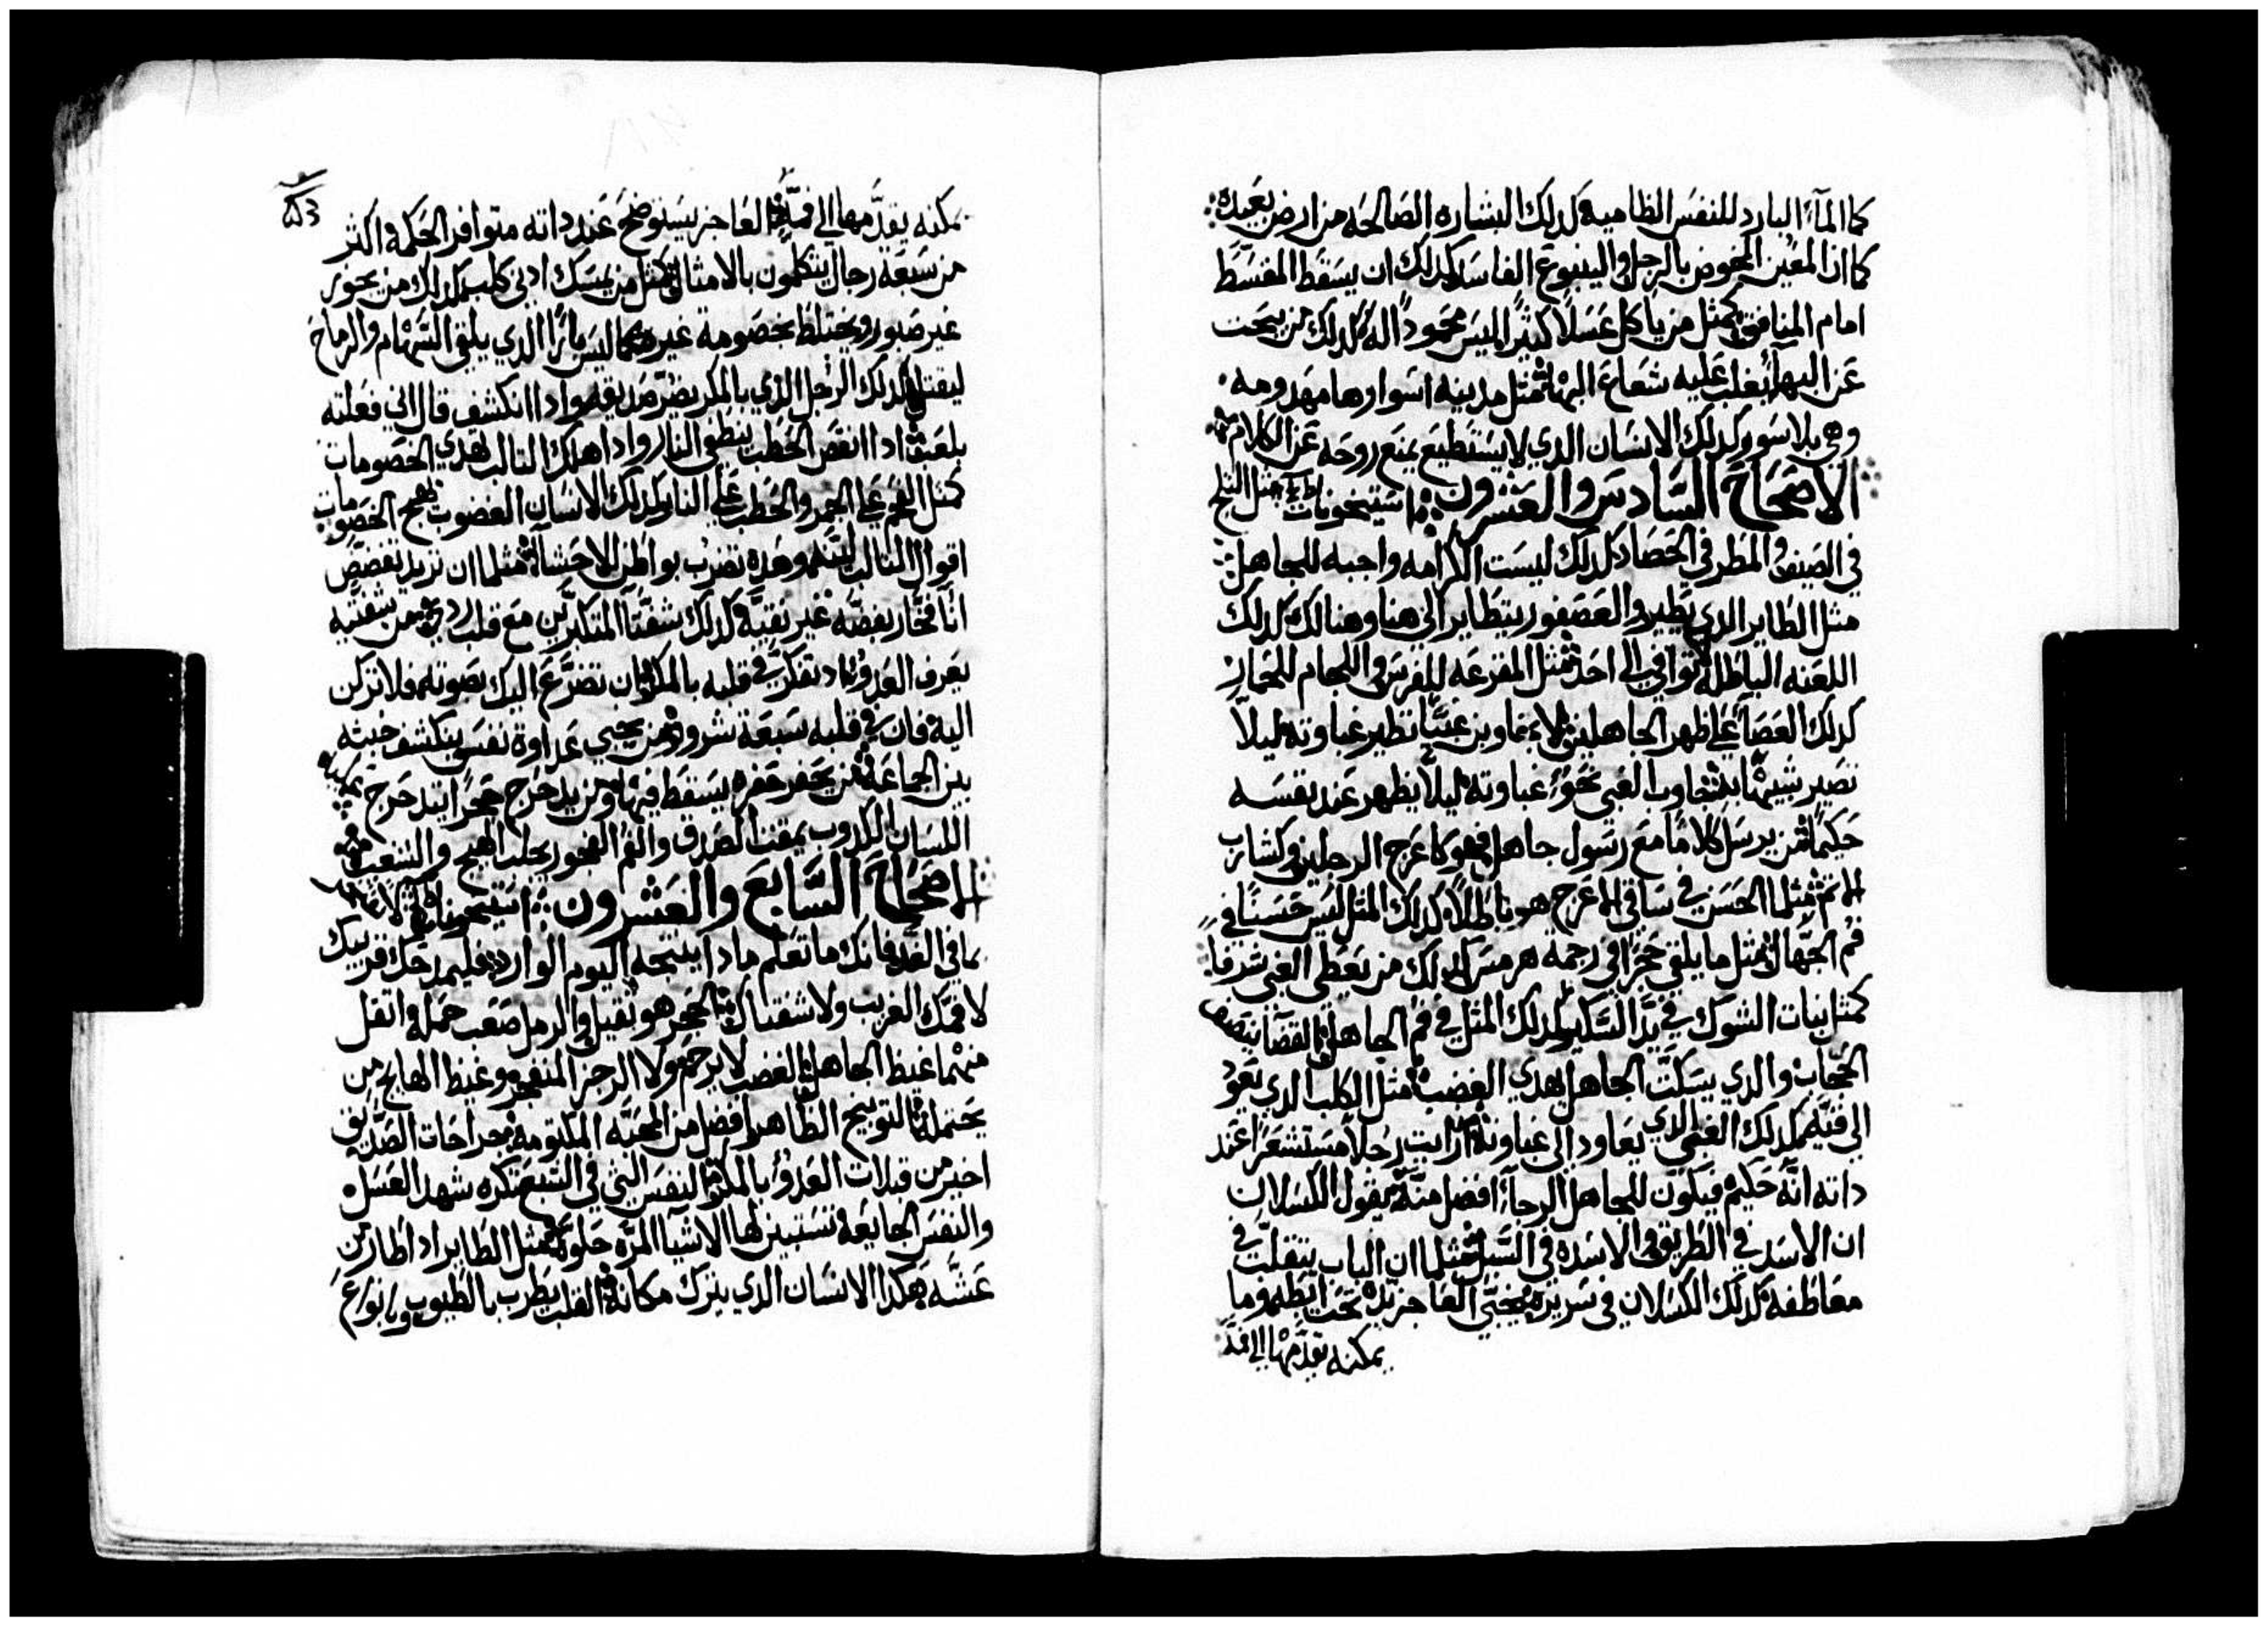 كما المآء البارد للنفس الظاميه كدلك البشاره الصالحه من ارض بعيده
كما ان المعين المخوض بالرجل والينبوع الفاسد كدلك ان يسقط المقسط
امام المنافق كمثل من ياكل عسلاً كثيراً ليس محموداً له كدلك من يبحت
عن البها يغلب عليه شعاع البها مثل مدينه اسوارها مهدومه
وهي بلا سور كدلك الانسان الدي لا يستطيع يمنع روحه عن الكلام
الاصحاح السادس والعشرون مثل التلج
في الصيف والمطر في الحصاد كدلك ليست الكرامه واجبه للجاهل
مثل الطاير الدي يطير والعصفور يتطاير الى هنا وهنالك كدلك
اللعنه الباطله توافي الى احد مثل المقرعه للفرس واللجام للحمار
كدلك العصا على ظهر الجاهلين لا تجاوبن غبيًا نظير غباوته ليلاّ
تصير شبيهًا به تجاوب الغبي نحو غباوته ليلاّ يظهر عند نفسه
حكيمًا من يرسل كلامًا مع رسول جاهل فهو كاعرج الرجلين وكشارب
الاتم مثلما الحسن في ساقي الاعرج هو باطلاً كدلك المثل ليس حسنًا في
فم الجهال مثل ما يلقي حجرًا في رجمة هرمس كدلك من يعطي الغبي شرفاً
كمثل نبات الشوك في يد السكير كدلك المثل في فم الجاهل القضآ
والدي يسكّت الجاهل يهدي الغضب مثل الكلب الدي يعود
الى قيّه كدلك الغبي الدي يعاود الى غباوته ارايت رجلاً مستشعراً عند
داته انّه حكيم فيكون للجاهل الرجآء افضل منّه يقول الكسلان
ان الاسد في الطريق والاسده في السبل مثلما ان الباب يتقلّب في
معاطفه كدلك الكسلان في سريره يخبّي العاجز يده تحت ابطه وما
يمكنه يقدّمها الى فمه
٥٣
يمكنه يقدّمها الى فمّه العاجز يستوضح عند داته متوافر الحكمه اكتر
من سبعة رجال يتكلمون بالامثال كمثل من يمسك ادني كلب كدلك من يجوز
غير صبور ويختلط بخصومة غيره كما ليس بارًا الدي يلقي السهام والرماح
ليقتل كدلك الرجل الدي بالمكر يضرّ صديقه وادا انكشف قال اني فعلته
بلعب ادا انقص الحطب ينطفي النار وادا هلك التالب تهدي الخصومات
كمثل الفحم على الجمر والحطب على النار كدلك الانسان الغضوب يهيج الخصومات
اقوال التالب ليّنه وهده تضرب بواطن الاحشآ مثلما ان تريد تفضض
انآ فخّار بفضّه غير نقيّه كدلك شفتا المتكبرين مع قلب ردي من شفتيه
يعرف العدو ادا تفكّر في قلبه بالمكر ان تضرّع اليك بصوته فلا تركن
اليه فان في قلبه سبعة شرور من يخبي عداوة نفس ينكشف خبثه
بين الجماعه من يحفر حفره يسقط فيها ومن يدحرج حجراً يتدحرج عليه
اللسان الكدوب يمقت الصدق والفم الفجور يجلب الهيج والشعب
الاصحاح السابع والعشرون
بما في الغد فانك ما تعلم مادا ينتجه اليوم الوارد فليمدحك قريبك
لا فمك الغريب ولا شفتاك الحجر هو تقيل والرمل صعب حمله واتقل
منهما غيظ الجاهل الغضب لا يرحم ولا الرجز المنفجر وغيظ الهايج من
يحتمله التوبيخ الظاهر افضل من المحبّه المكتومه جراحات الصديق
اخير من قبلات العدو بالمكر النفس التي في الشبع تكره شهد العسل
والنفس الجايعه تستبين لها الاشيا المرّه حلوه كمثل الطاير ادا طار من
عشّه هكدا الانسان الدي يترك مكانه القلب يطرب بالطيوب وبانواع